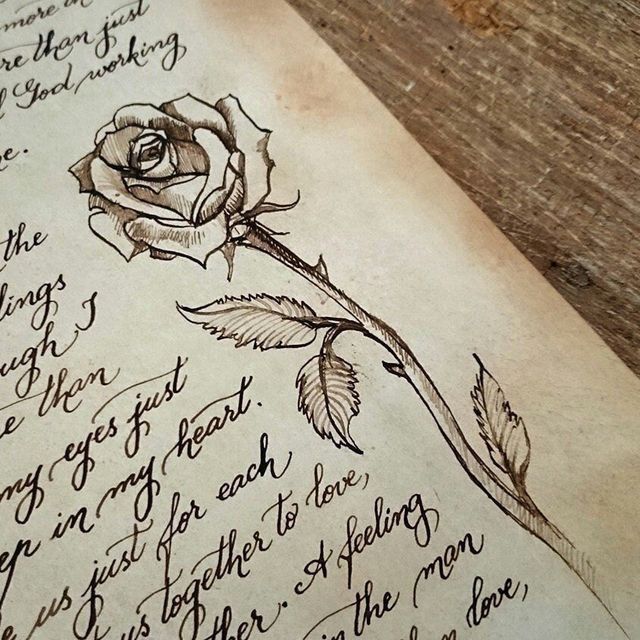 more in
re than just
God working
e.
the
lings
ough I
e than
my eyes just
ep in my heart.
us just for each
us together to love,
ther. A feeling
in the man
love,